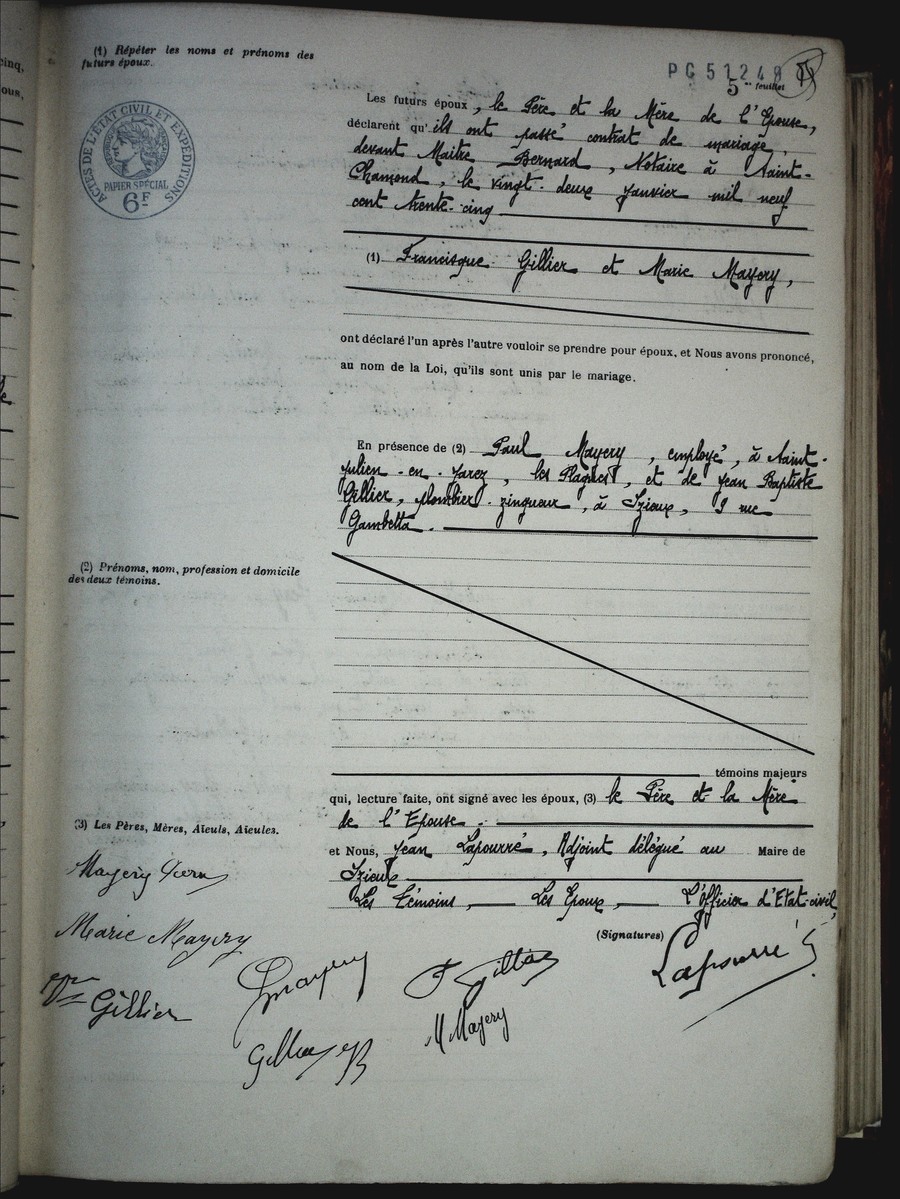 (1) Répéter les noms et prénoms des
futurs époux.
PC51249
5e feuillet
ACTES DE L'ÉTAT CIVIL ET EXPÉDITIONS
PAPIER SPÉCIAL
6F
Les futurs époux, le Père et la Mère de l'Epouse,
déclarent qu'ils ont passé contrat de mariage,
devant Maitre Bernard, Notaire à Saint-
Chamond, le vingt-deux Janvier mil neuf
cent trente-cinq
(1) Francisque Gillier et Marie Mayery,
ont déclaré l'un après l'autre vouloir se prendre pour époux, et Nous avons prononcé,
au nom de la Loi, qu'ils sont unis par le mariage.
En présence de (2) Paul Mayery, employé, à Saint-
Julien-en-Jarez, les Plagnes, et de Jean Baptiste
Gillier, plombier-zingueur, à Izieux, 9 rue
Gambetta.
(2) Prénoms, nom, profession et domicile
des deux témoins.
témoins majeurs
qui, lecture faite, ont signé avec les époux, (3) le Père et la Mère
de l'Epouse.
(3) Les Pères, Mères, Aïeuls, Aïeules.
et Nous, Jean Lapourré, Adjoint délégué au Maire de
Izieux
Les Témoins, Les Epoux, L'Officier d'Etat-civil,
(Signatures)
Mayery
Marie Mayery
Vve Gillier
Mayery
F Gillier
Lapourré
M Mayery
Gillier JB